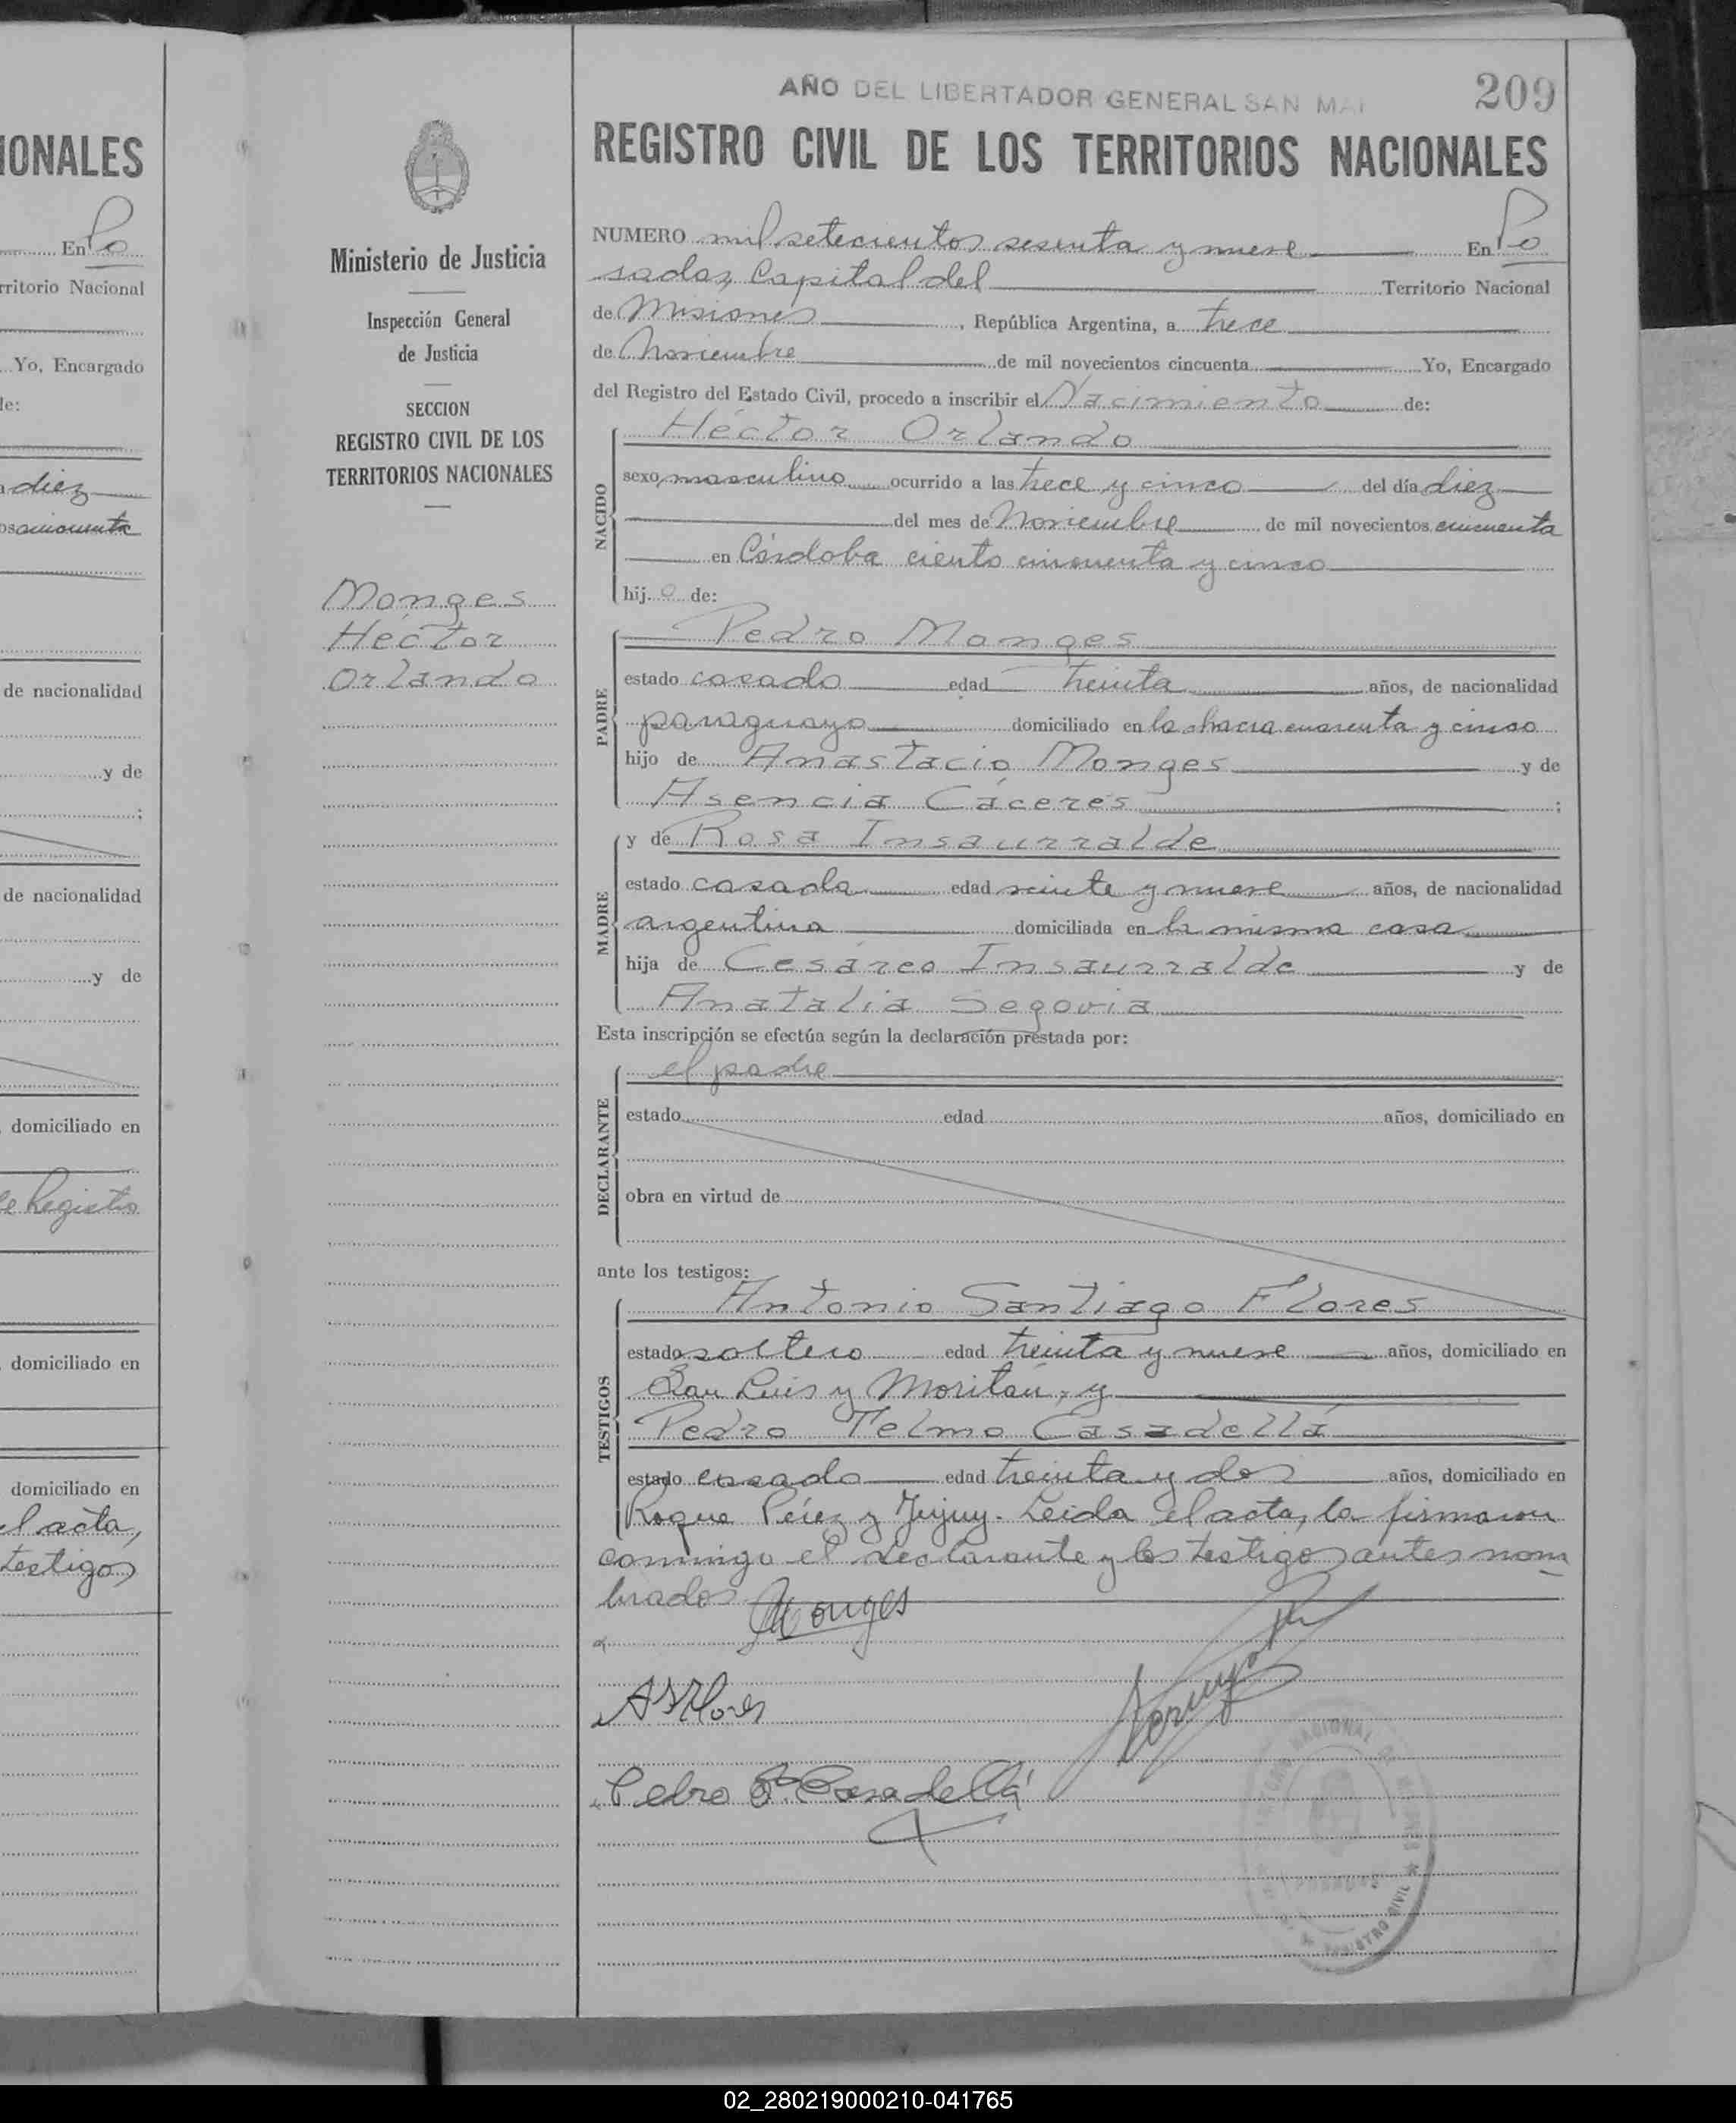 IONALES
En Po
rritorio Nacional
Yo, Encargado
de:
diez
os cincuenta
de nacionalidad
y de
de nacionalidad
y de
, domiciliado en
de Registro
, domiciliado en
domiciliado en
el acta,
testigos
Ministerio de Justicia
Inspección General
de Justicia
SECCION
REGISTRO CIVIL DE LOS
TERRITORIOS NACIONALES
Monges
Héctor
Orlando
AÑO DEL LIBERTADOR GENERAL SAN MAR
209
REGISTRO CIVIL DE LOS TERRITORIOS NACIONALES
NUMERO mil setecientos sesenta y nueve En Po
sadas, Capital del Territorio Nacional
de Misiones, República Argentina, a trece
de Noviembre de mil novecientos cincuenta Yo, Encargado
del Registro del Estado Civil, procedo a inscribir el Nacimiento de:
Héctor Orlando
NACIDO
sexo masculino ocurrido a las trece y cinco del día diez
del mes de Noviembre de mil novecientos cincuenta
en Córdoba ciento cincuenta y cinco
hijo de:
Pedro Monges
PADRE
estado casado edad treinta años, de nacionalidad
paraguayo domiciliado en la chacra cuarenta y cinco
hijo de Anastacio Monges y de
Asencia Cáceres;
y de Rosa Insaurralde
MADRE
estado casada edad veinte y nueve años, de nacionalidad
argentina domiciliada en la misma casa
hija de Cesáreo Insaurralde y de
Anatalia Segovia
Esta inscripción se efectúa según la declaración prestada por:
el padre
DECLARANTE
estado edad años, domiciliado en
obra en virtud de
ante los testigos:
Antonio Santiago Flores
TESTIGOS
estado soltero edad treinta y nueve años, domiciliado en
San Luis y Moritán, y
Pedro Telmo Casadellá
estado casado edad treinta y dos años, domiciliado en
Roque Pérez y Jujuy. Leida el acta, la firmaron
conmigo el declarante y los testigos antes nom
brados
Monges
A S Flores
Pedro T. Casadellá
REGISTRO CIVIL
02_280219000210-041765